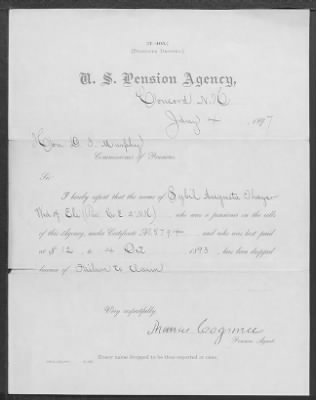 (Pensioner Dropped.)
U. S. Pension Agency,
Concord N.H.
Jany 4 1897
Hon. D. I. Murphy
Commissioner of Pensions.
Sir
I hereby report that the name of Sybil Augusta Thayer
who was a pensioner on the rolls
of this Agency, under Certificate No. and who was last paid
at $ 12 to 4 Oct 1893, has been dropped
because of Failure to Claim
Very respectfully,
Cogswell
Pension Agent.
Every name dropped to be thus reported at once.